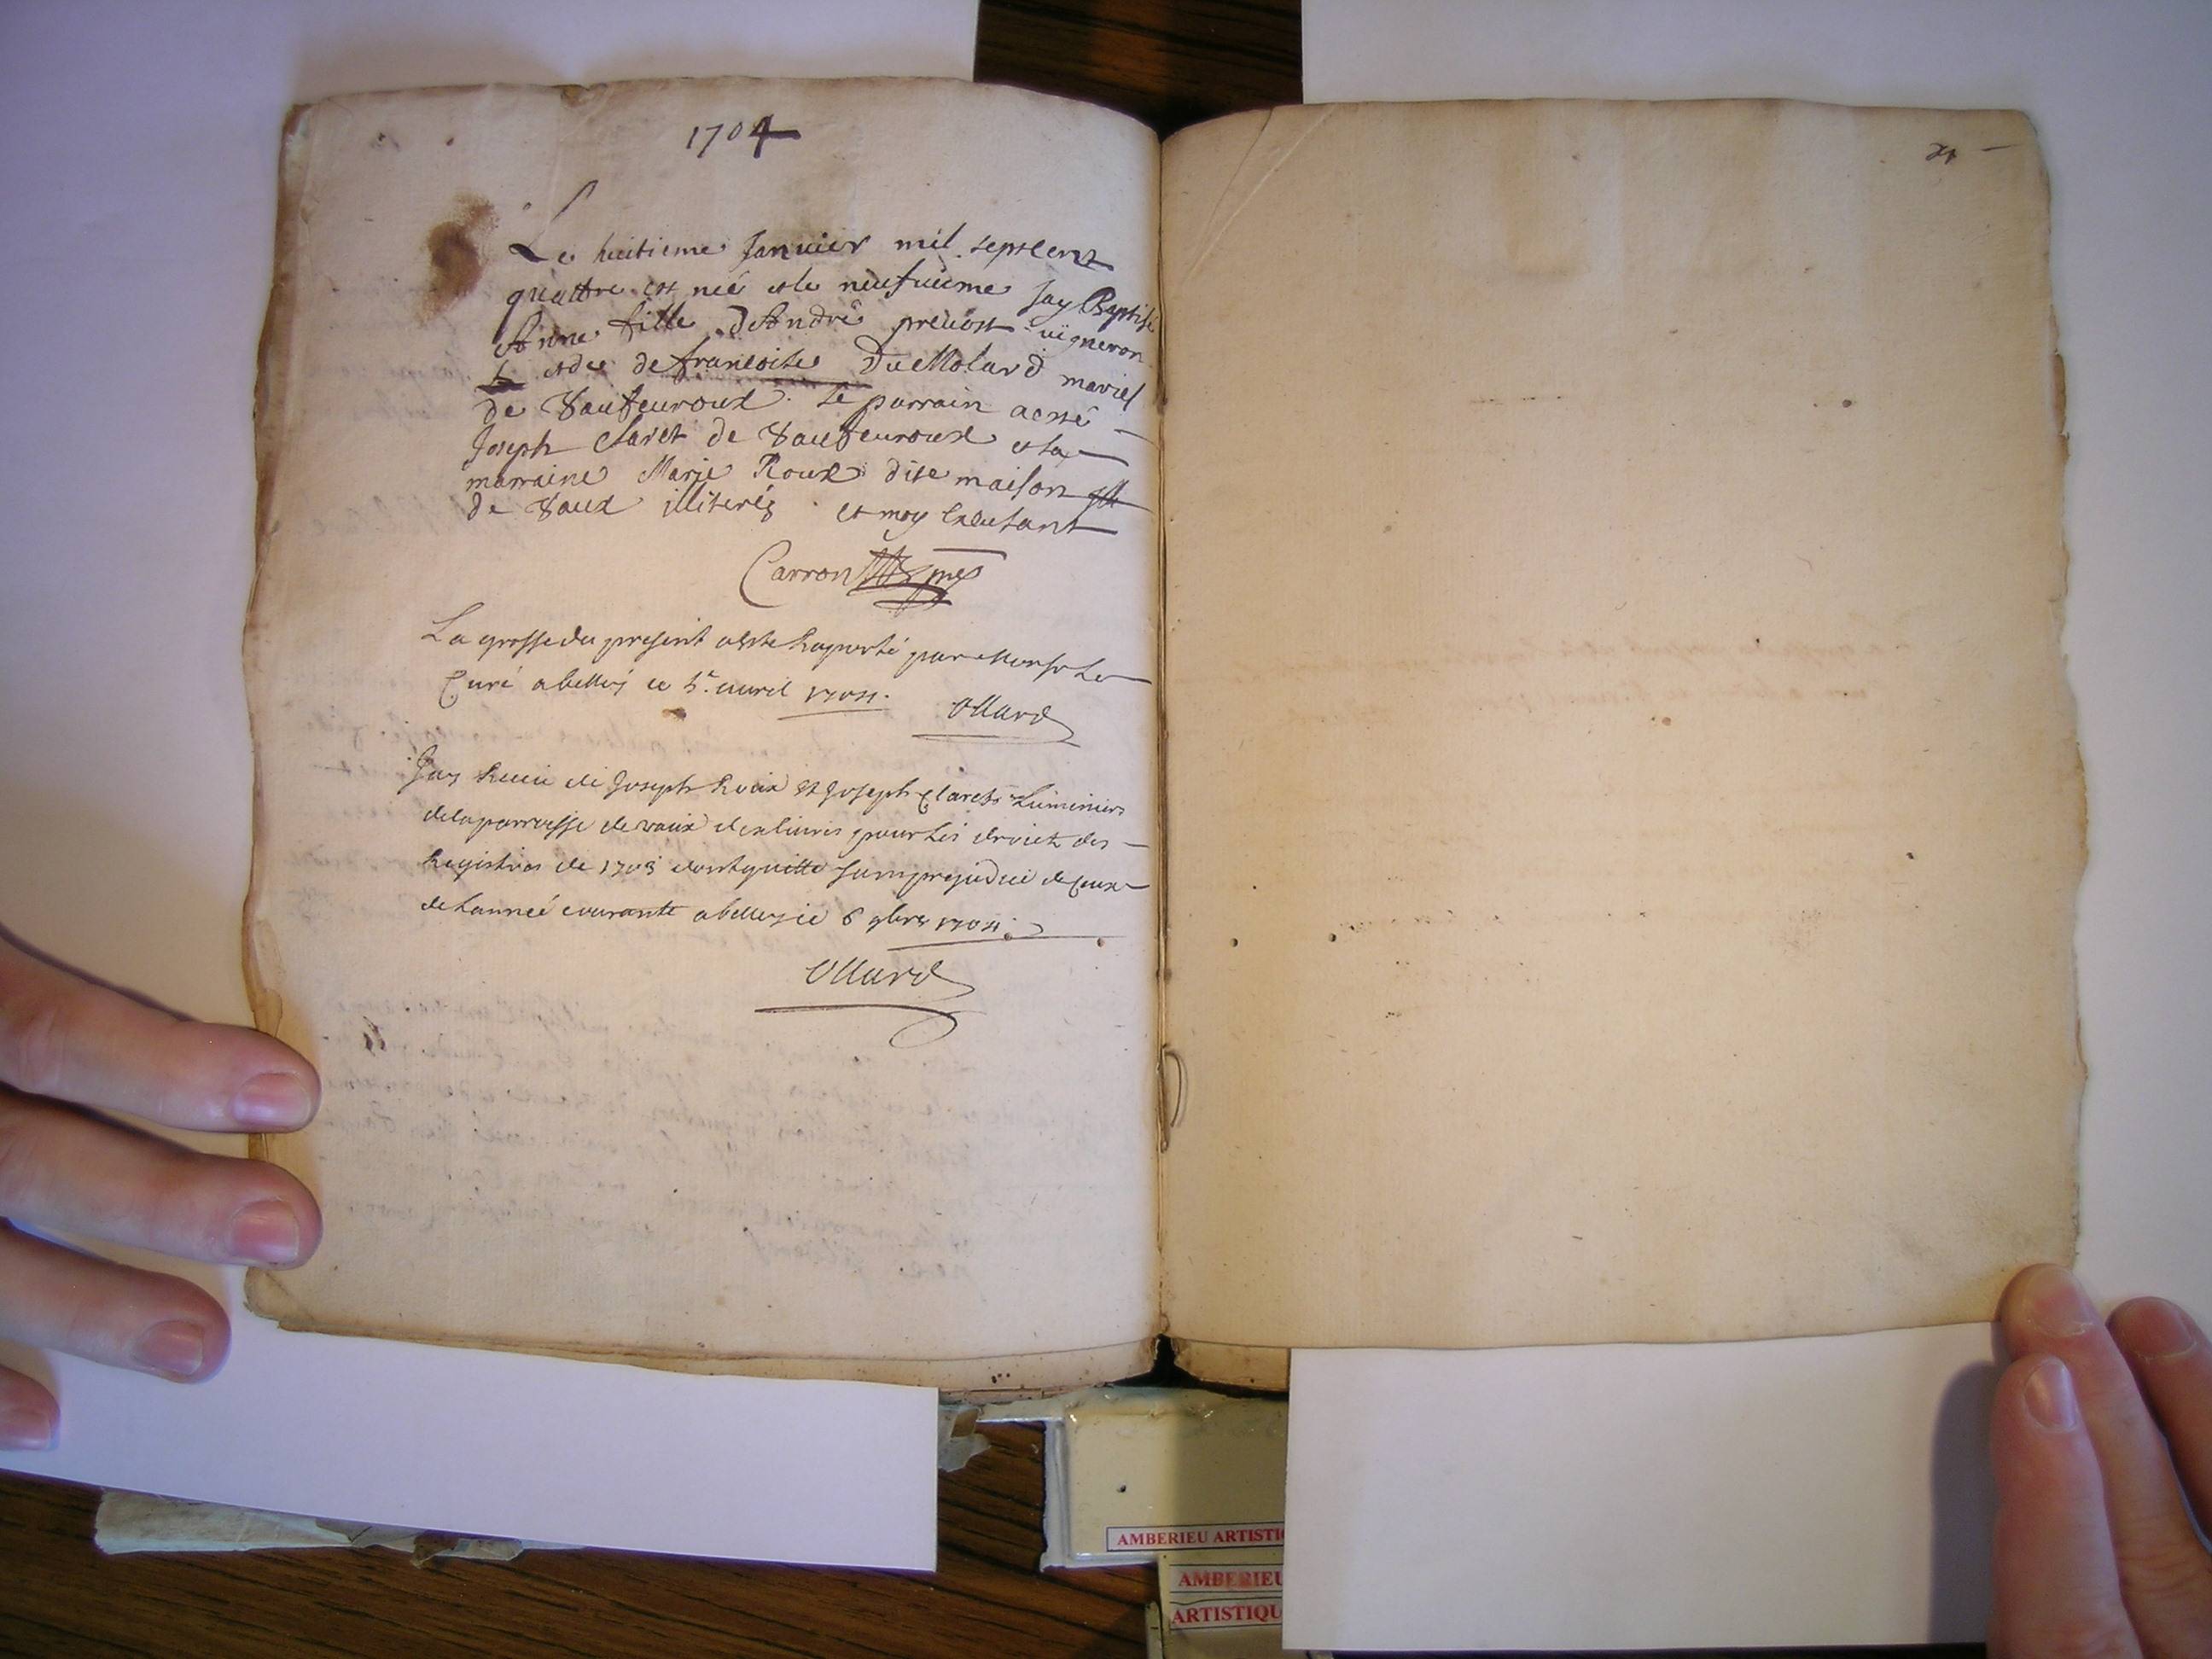 1704
Le huitieme Janvier mil septcent
quattre est née et le neufuieme Jay Baptisé
Anne fille d'André preuost uigneron
et de francoise Du Molard mariés
de Vaufeuroux. Le parrain a esté
Joseph Claret de Vaufeuroux et la
marraine Marie Roux dite maison
de Vaux illiterés et moy
Carron
La grosse du present a esté raporté par Monsr Le
Curé a belley ce avril 1704.
Ollard
Jay receu de Joseph Roux et Joseph Claret Luminiers
de la parroisse de vaux dix liures pour les droicts des
Registres de 1703 dont quitte sans prejudice de ceux
de Lannée courante a belley ce 6 9bre 1704.
Ollard
AMBERIEU ARTISTI
AMBERIEU
ARTISTIQU